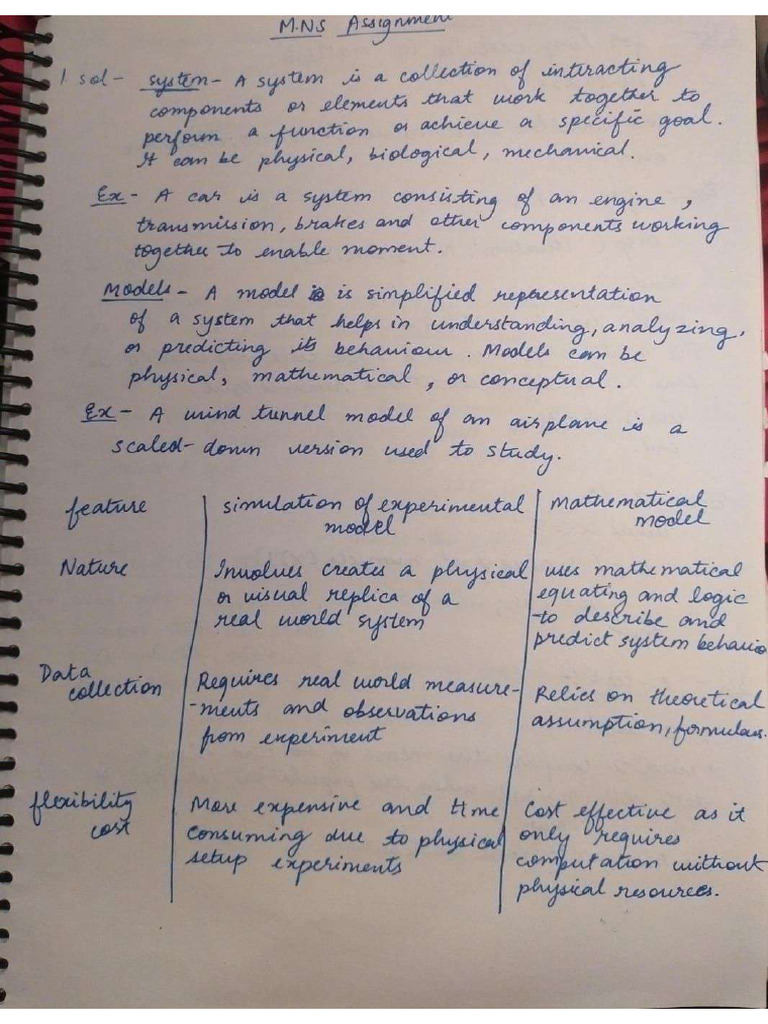 M.N.S Assignment
1. sol- system- A system is a collection of interacting
components or elements that work together to
perform a function or achieve a specific goal.
It can be physical, biological, mechanical.
Ex- A car is a system consisting of an engine,
transmission, brakes and other components working
together to enable moment.
Models- A model is is simplified representation
of a system that helps in understanding, analyzing,
or predicting its behaviour. Models can be
physical, mathematical, or conceptual.
Ex- A wind tunnel model of an airplane is a
scaled-down version used to study.
feature | simulation of experimental model | Mathematical model
Nature | Involves creates a physical | uses mathematical
or visual replica of a | equating and logic
real world system | to describe and
predict system behavio
Data collection | Requires real world measure- | Relies on theoretical
-ments and observations | assumption, formulas.
from experiment
flexibility | More expensive and time | Cost effective as it
cost | consuming due to physical | only requires
setup experiments | computation without
physical resources.